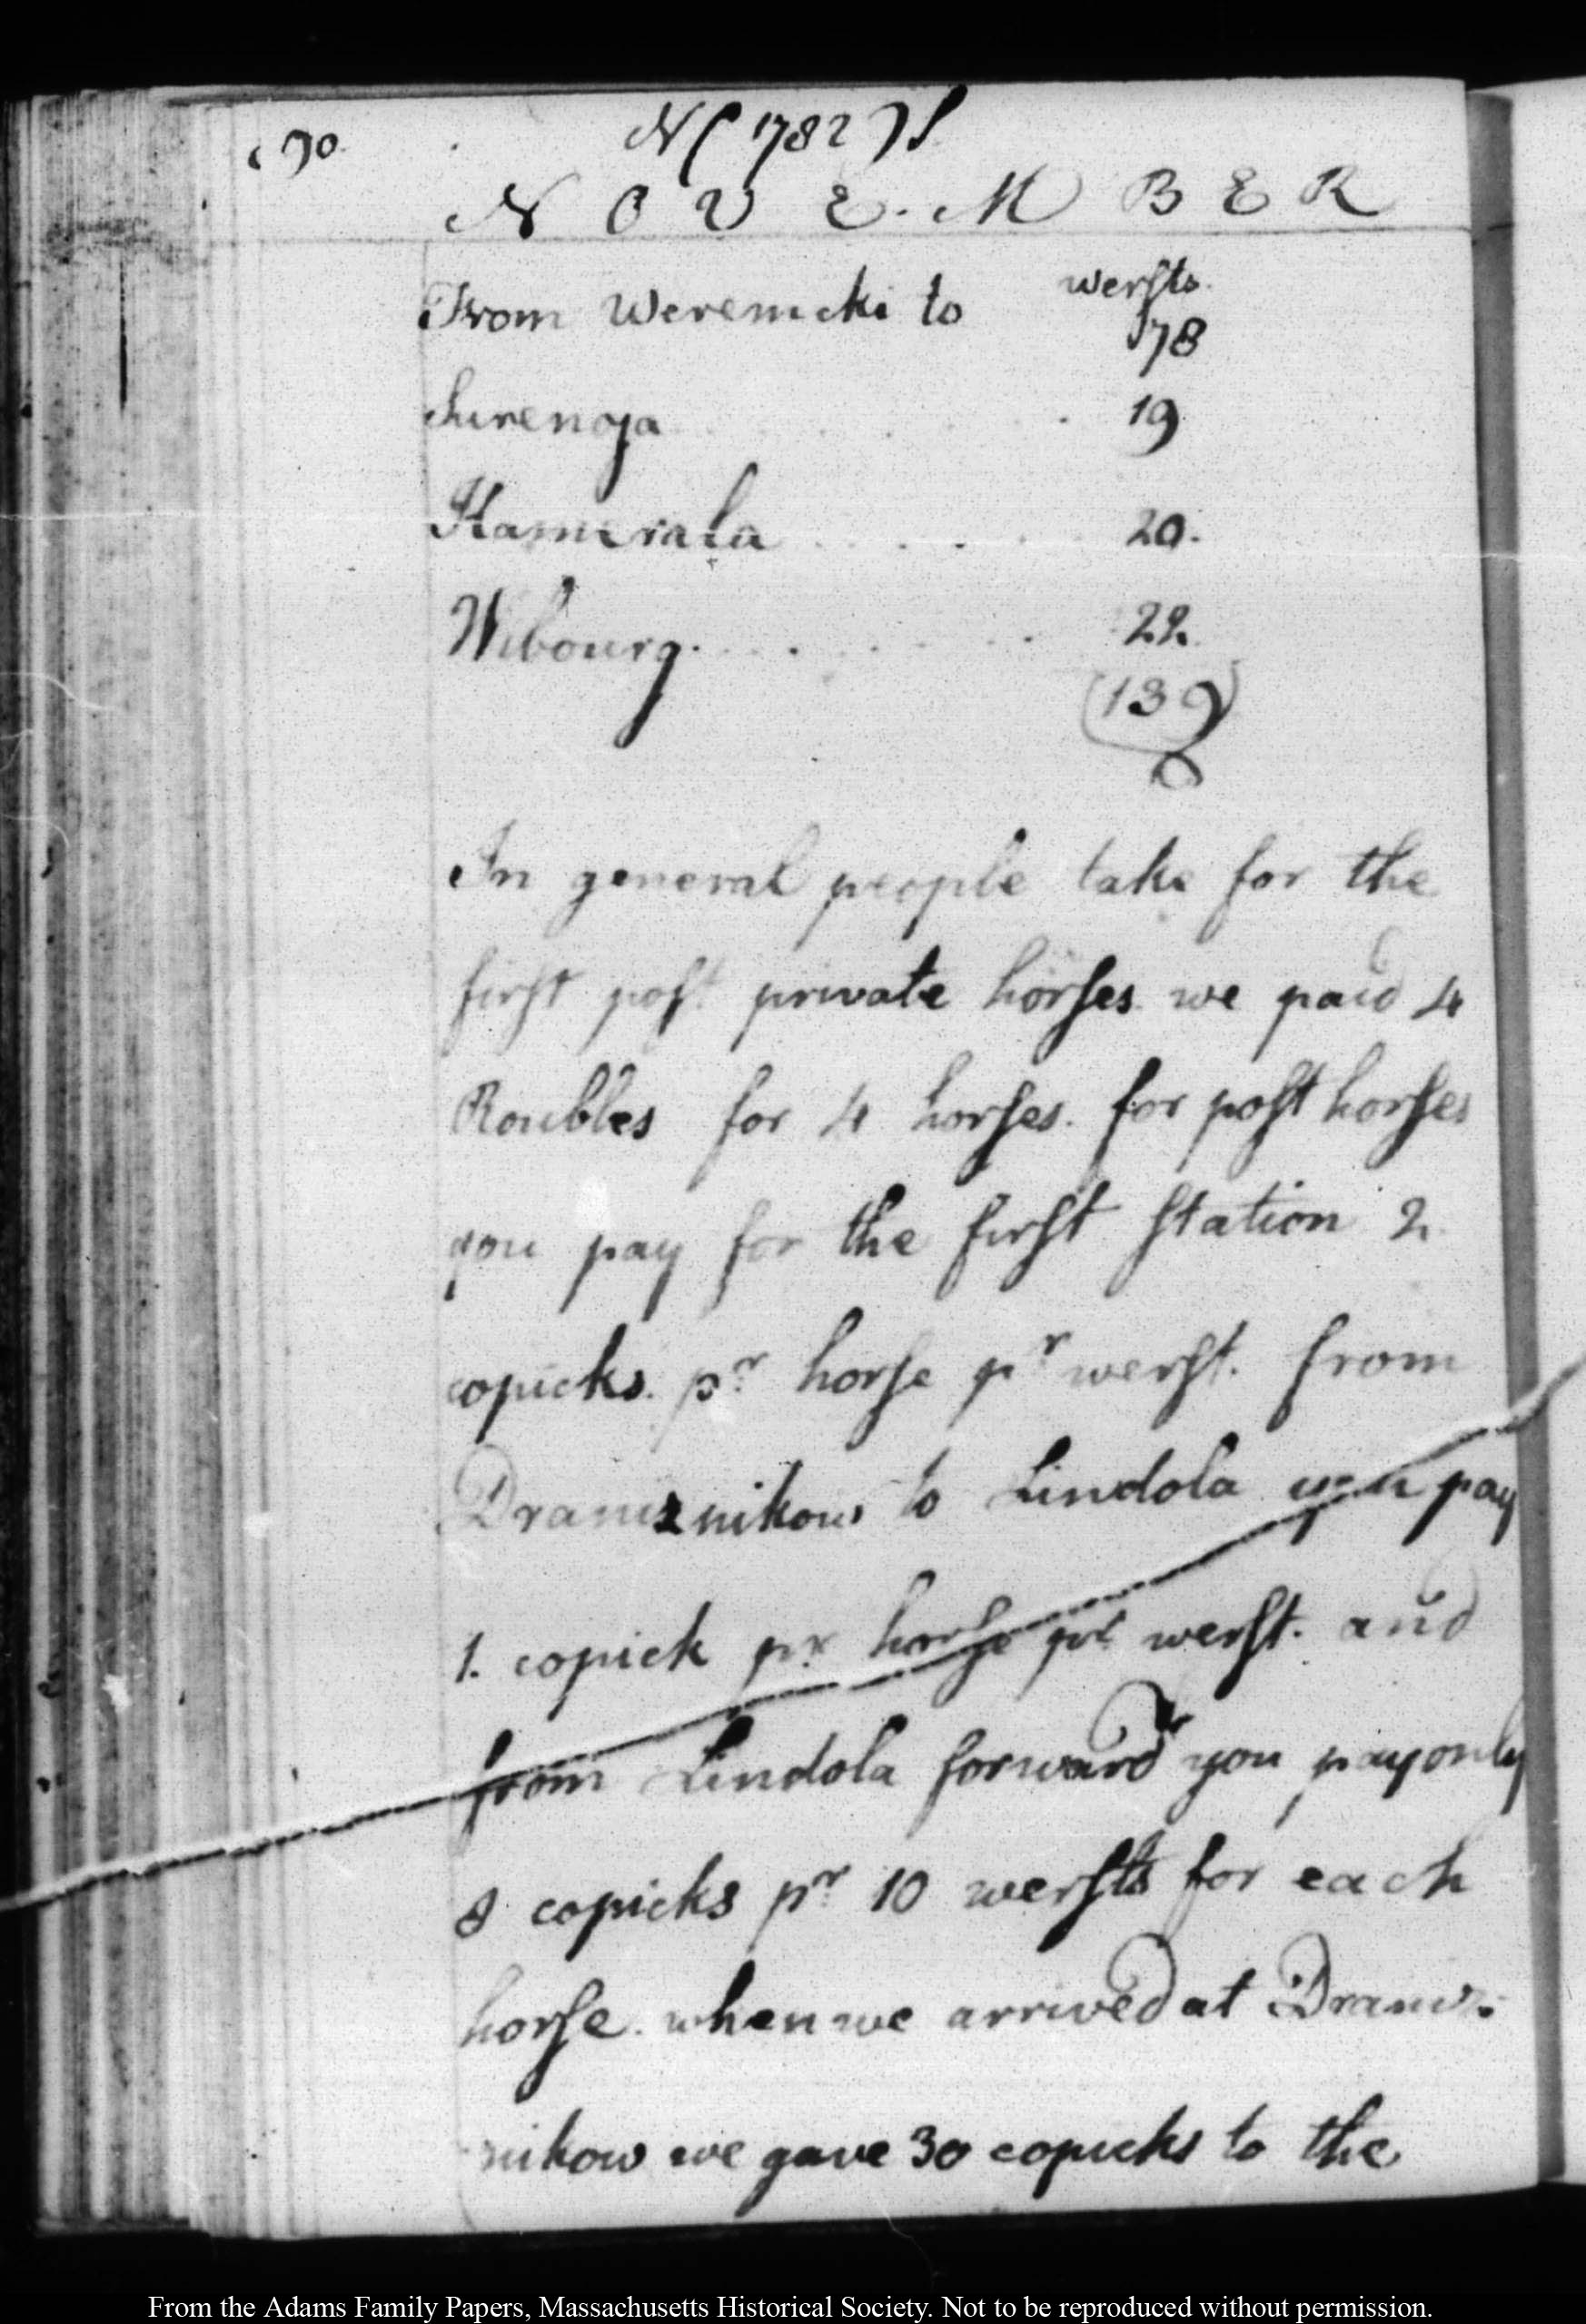 70
N (1782) S
NOVEMBER
From Weremcki to wersts
78
Surenoja 19
Kamerala . . . . 20.
Wibourg. . . . . 22
(139)
In general people take for the
first post private horses we paid 4
Roubles for 4 horses. for post horses
you pay for the first station 2
copicks pr horse pr werst. from
Dranisnikow to Lindola you pay
1. copick pr horse pr werst. and
from Lindola forward you pay only
8 copicks pr 10 wersts for each
horse. when we arrived at Dranis-
nikow we gave 30 copicks to the
From the Adams Family Papers, Massachusetts Historical Society. Not to be reproduced without permission.